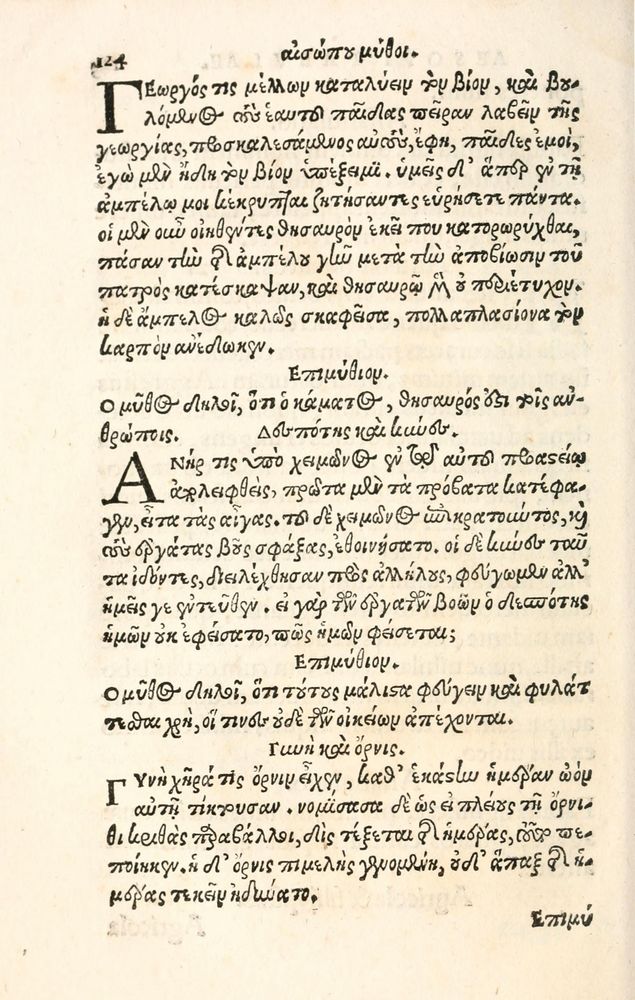 124 αἰσώπου μῦθοι.
Γεωργός τις μέλλων καταλύειν τὸν βίον, καὶ βου-
λόμενος τοὺς ἑαυτοῦ παῖδας πεῖραν λαβεῖν τῆς
γεωργίας, προσκαλεσάμενος αὐτοὺς, ἔφη, παῖδες ἐμοὶ,
ἐγὼ μὲν ἤδη τὸν βίον ὑπέξειμι. ὑμεῖς δ' ἅπερ ἐν τῇ
ἀμπέλῳ μοι κέκρυπται ζητήσαντες εὑρήσετε πάντα.
οἱ μὲν οὖν οἰηθέντες θησαυρὸν ἐκεῖ που κατορωρύχθαι,
πᾶσαν τὴν τῆς ἀμπέλου γῆν μετὰ τὴν ἀποβίωσιν τοῦ
πατρὸς κατέσκαψαν, καὶ θησαυρῷ μὲν οὐ περιέτυχον.
ἡ δὲ ἄμπελος καλῶς σκαφεῖσα, πολλαπλασίονα τὸν
καρπὸν ἀνέδωκεν.
Επιμύθιον.
Ο μῦθος δηλοῖ, ὅτι ὁ κάματος, θησαυρός ἐστι τοῖς ἀν-
θρώποις. Δεσπότης καὶ κύνες.
Ανήρ τις ὑπὸ χειμῶνος ἐν τῷ αὐτοῦ προαστείῳ
ἀποληφθεὶς, πρῶτα μὲν τὰ πρόβατα κατέφα-
γεν, εἶτα τὰς αἶγας. τοῦ δὲ χειμῶνος ἐπικρατοῦντος, καὶ
τοὺς ἐργάτας βοῦς σφάξας, ἐθοινήσατο. οἱ δὲ κύνες ταῦ
τα ἰδόντες, διειλέχθησαν πρὸς ἀλλήλους, φεύγωμεν ἀλλ'
ἡμεῖς γε ἐντεῦθεν. εἰ γὰρ τῶν ἐργατῶν βοῶν ὁ δεσπότης
ἡμῶν οὐκ ἐφείσατο, πῶς ἡμῶν φείσεται;
Επιμύθιον.
Ο μῦθος δηλοῖ, ὅτι τούτους μάλιστα φεύγειν καὶ φυλάτ
τεσθαι χρὴ, οἵ τινες οὐδὲ τῶν οἰκείων ἀπέχονται.
Γυνὴ καὶ ὄρνις.
Γυνὴ χῆρά τις ὄρνιν εἶχεν, καθ' ἑκάστην ἡμέραν ὠὸν
αὐτῇ τίκτουσαν. νομίσασα δὲ ὡς εἰ πλείους τῇ ὄρνι-
θι κριθὰς παραβάλλοι, δὶς τέξεται τῆς ἡμέρας, τοῦτο πε-
ποίηκεν. ἡ δ' ὄρνις πιμελὴς γενομένη, οὐδ' ἅπαξ τῆς ἡ-
μέρας τεκεῖν ἠδύνατο.
Επιμύ